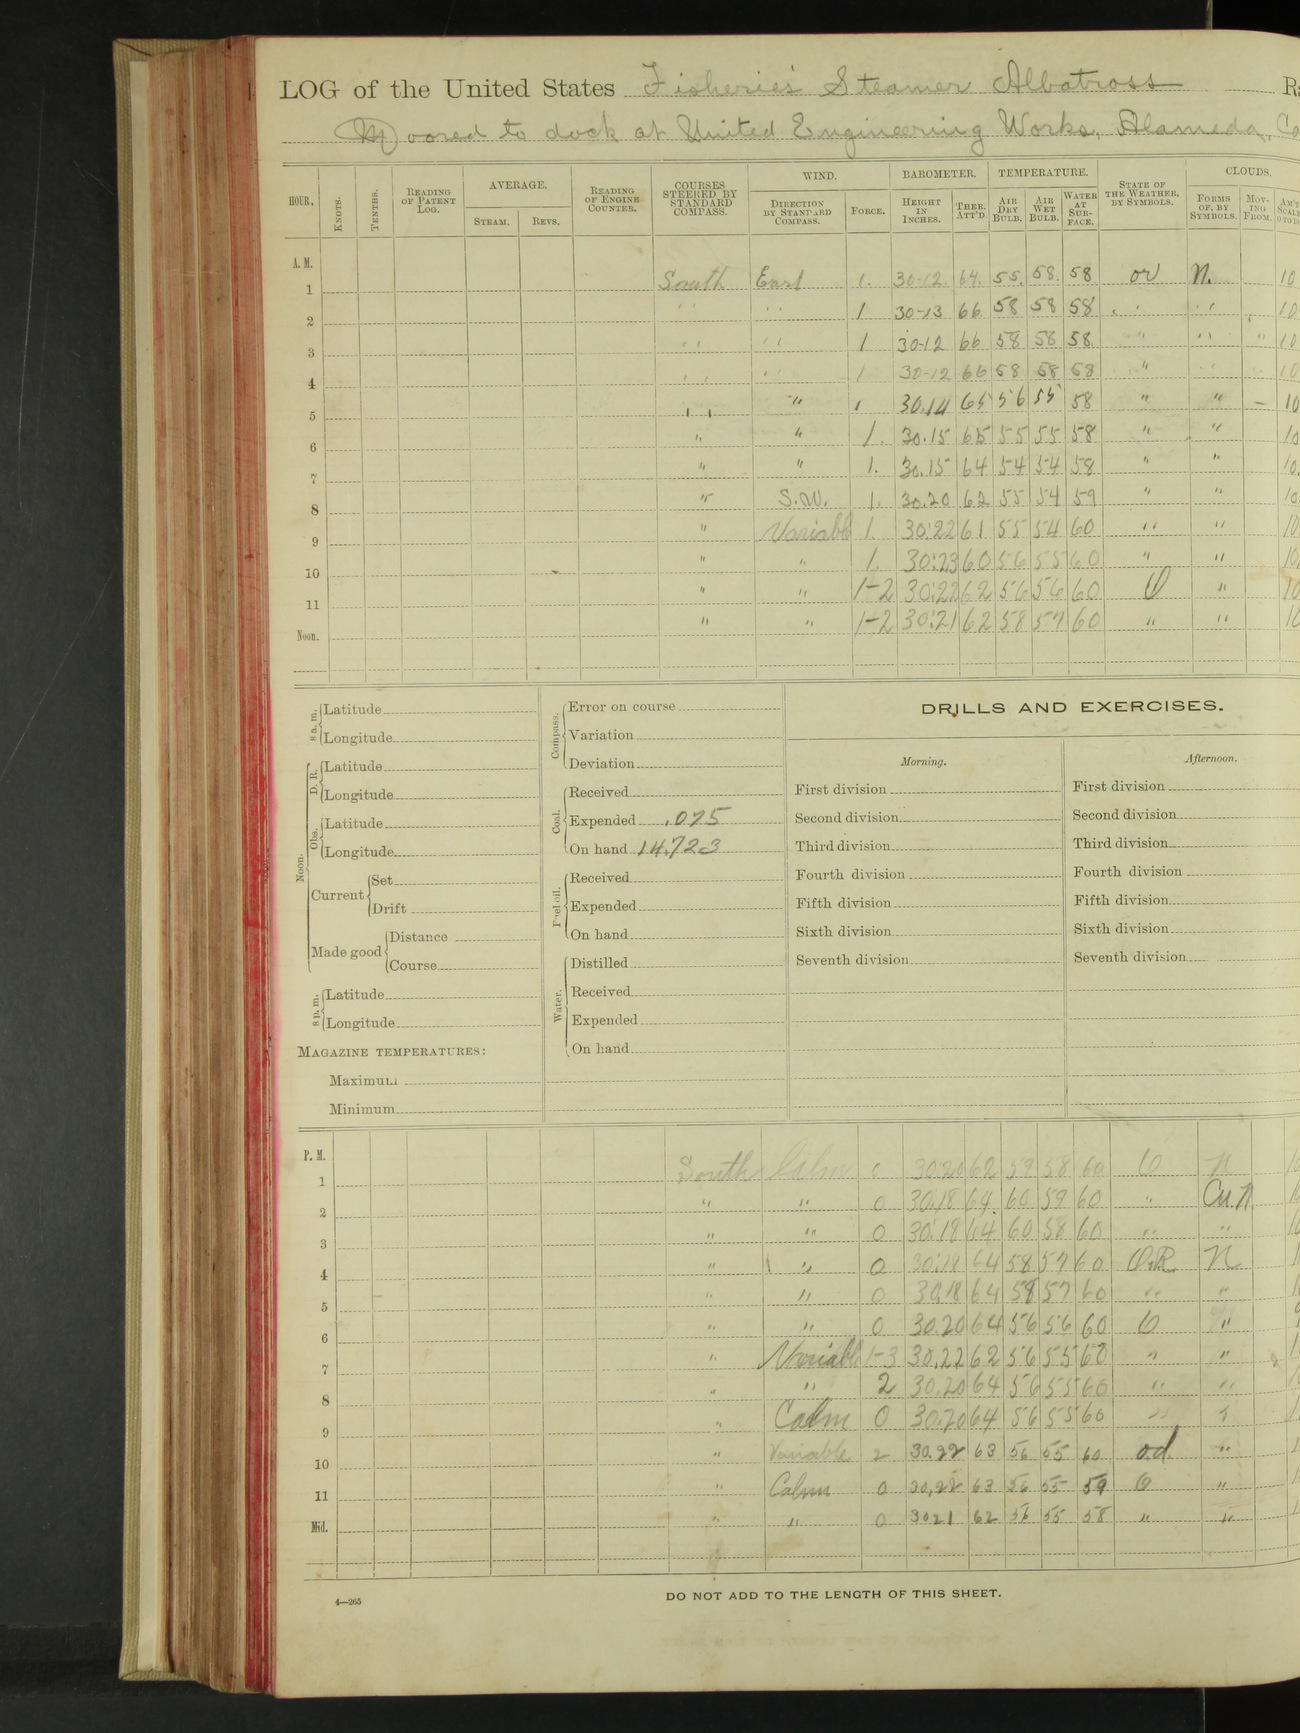 LOG of the United States Fisheries Steamer Albatross
Moored to dock at United Engineering Works, Alameda, Ca
HOUR. KNOTS. TENTHS. READING OF PATENT LOG. AVERAGE. STEAM. REVS. READING OF ENGINE COUNTER. COURSES STEERED BY STANDARD COMPASS. WIND. DIRECTION BY STANDARD COMPASS. FORCE. BAROMETER. HEIGHT IN INCHES. THER. ATT'D. TEMPERATURE. AIR DRY BULB. AIR WET BULB. WATER AT SURFACE. STATE OF THE WEATHER, BY SYMBOLS. CLOUDS. FORMS OF, BY SYMBOLS. MOVING FROM.
A. M.
1 South East 1. 30-12 64. 55. 58. 58 or N. 10
2 " " 1 30-13 66 58 58 58 " " " 10
3 " " 1 30-12 66 58 58 58. " " " 10
4 " " 1 30-12 66 58 58 58 " " 10
5 " " 1 30.14 65 56 55 58 " " — 10
6 " " 1. 30.15 65 55 55 58 " " 10
7 " " 1. 30.15 64 54 54 58 " " 10.
8 " S.W. 1. 30.20 62 55 54 59 " " 10.
9 " Variable 1. 30.22 61 55 54 60 " " 10
10 " " 1. 30.23 60 56 55 60 " " 10
11 " " 1-2 30.22 62 56 56 60 O " 10
Noon. " " 1-2 30.21 62 58 57 60 " " 10
8 a. m. Latitude
Longitude
Noon. D. R. Latitude
Longitude
Obs. Latitude
Longitude
Current Set
Drift
Made good Distance
Course
8 p. m. Latitude
Longitude
MAGAZINE TEMPERATURES:
Maximum
Minimum
Compass. Error on course
Variation
Deviation
Coal. Received
Expended .075
On hand 14.723
Fuel oil. Received
Expended
On hand
Water. Distilled
Received
Expended
On hand
DRILLS AND EXERCISES.
Morning.
First division
Second division
Third division
Fourth division
Fifth division
Sixth division
Seventh division
Afternoon.
First division
Second division
Third division
Fourth division
Fifth division
Sixth division
Seventh division
P. M.
1 South Calm 0 30.20 62 59 58 60 O N 10
2 " " 0 30.18 64 60 59 60 " Cu.N.
3 " " 0 30.18 64 60 58 60 " "
4 " " 0 30.18 64 58 57 60 O.R N
5 " " 0 30.18 64 58 57 60 " "
6 " " 0 30.20 64 56 56 60 O "
7 " Variable 1-3 30.22 62 56 55 60 " "
8 " " 2 30.20 64 56 55 60 " "
9 " Calm 0 30.20 64 56 55 60 " "
10 " Variable 2 30.22 63 56 55 60 o.d. "
11 " Calm 0 30.22 63 56 55 59 O "
Mid. " " 0 30 21 62 56 55 58 " "
4—265
DO NOT ADD TO THE LENGTH OF THIS SHEET.